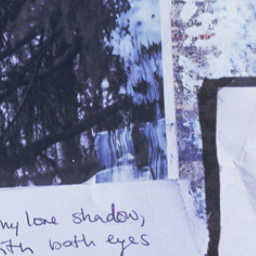 my lone shadow,
with both eyes